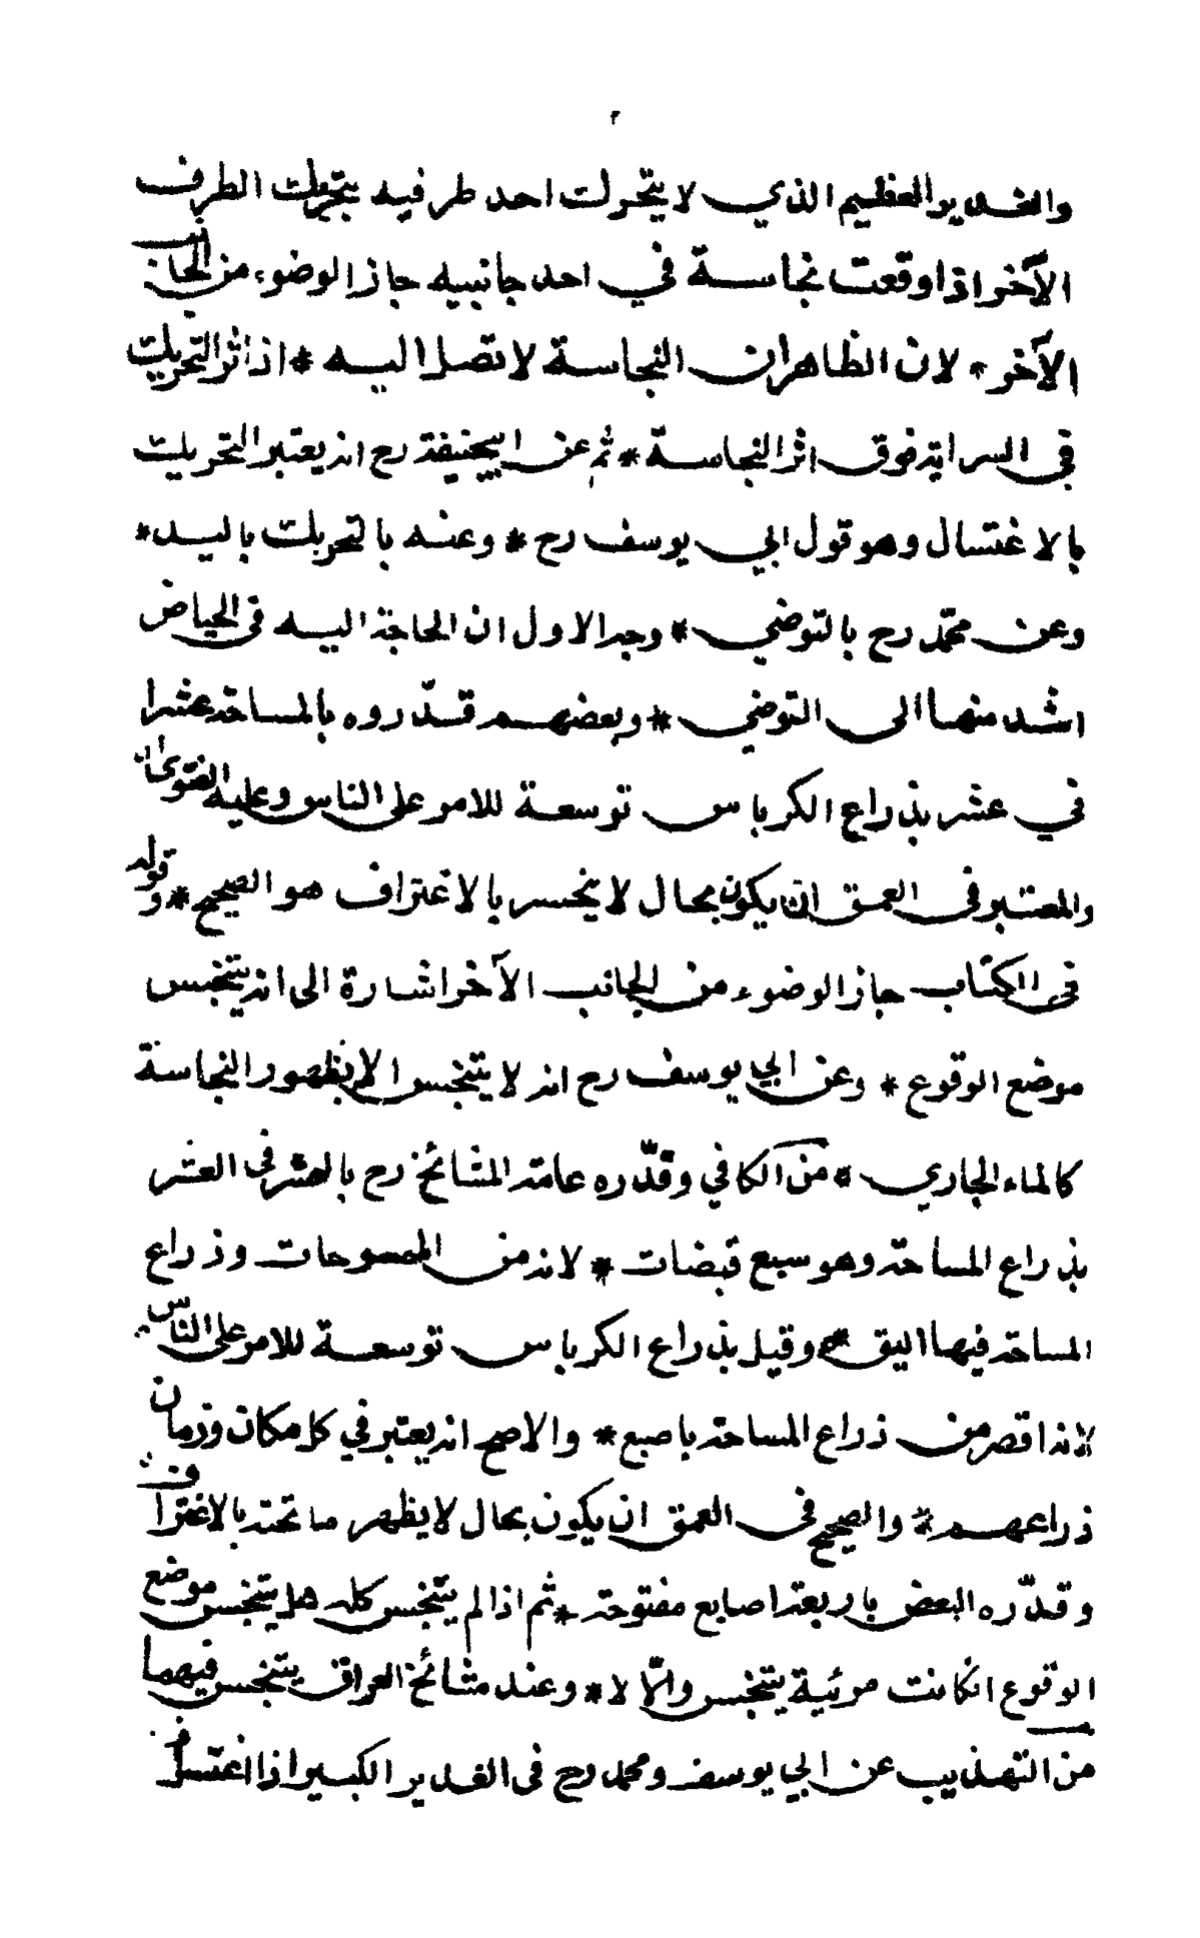 ٢
والغدير العظيم الذي لا يتحرك احد طرفيه بتحريك الطرف
الآخر اذا وقعت نجاسة في احد جانبيه جاز الوضوء من الجانب
الآخر * لان الظاهر ان النجاسة لا تصل اليه * اذ اثر التحريك
في السراية فوق اثر النجاسة * ثم عن ابيحنيفة رح انه يعتبر التحريك
بالاغتسال وهو قول ابي يوسف رح * وعنه بالتحريك باليد *
وعن محمّد رح بالتوضي * وجه الاول ان الحاجة اليه في الحياض
اشد منها الى التوضي * وبعضهم قدّروه بالمساحة عشرا
في عشر بذراع الكرباس توسعة للامر على الناس وعليه الفتوى *
والمعتبر في العمق ان يكون بحال لا ينحسر بالاغتراف هو الصحيح * وقوله
في الكتاب جاز الوضوء من الجانب الآخر اشارة الى انه يتنجس
موضع الوقوع * وعن ابي يوسف رح انه لا يتنجس الا بظهور النجاسة
كالماء الجاري * من الكافي وقدّره عامة المشائخ رح بالعشر في العشر
بذراع المساحة وهو سبع قبضات * لانه من الممسوحات وذراع
المساحة فيها اليق * وقيل بذراع الكرباس توسعة للامر على الناس *
لانه اقصر من ذراع المساحة باصبع * والاصح انه يعتبر في كل مكان وزمان
ذراعهم * والصحيح في العمق ان يكون بحال لا يظهر ما تحته بالاغتراف *
وقدّره البعض باربعة اصابع مفتوحة * ثم اذا لم يتنجس كله هل يتنجس موضع
الوقوع انكانت مرئية يتنجس والّا لا * وعند مشائخ العراق يتنجس فيهما
من التهذيب عن ابي يوسف ومحمد رح في الغدير الكبير اذا اغتسل في